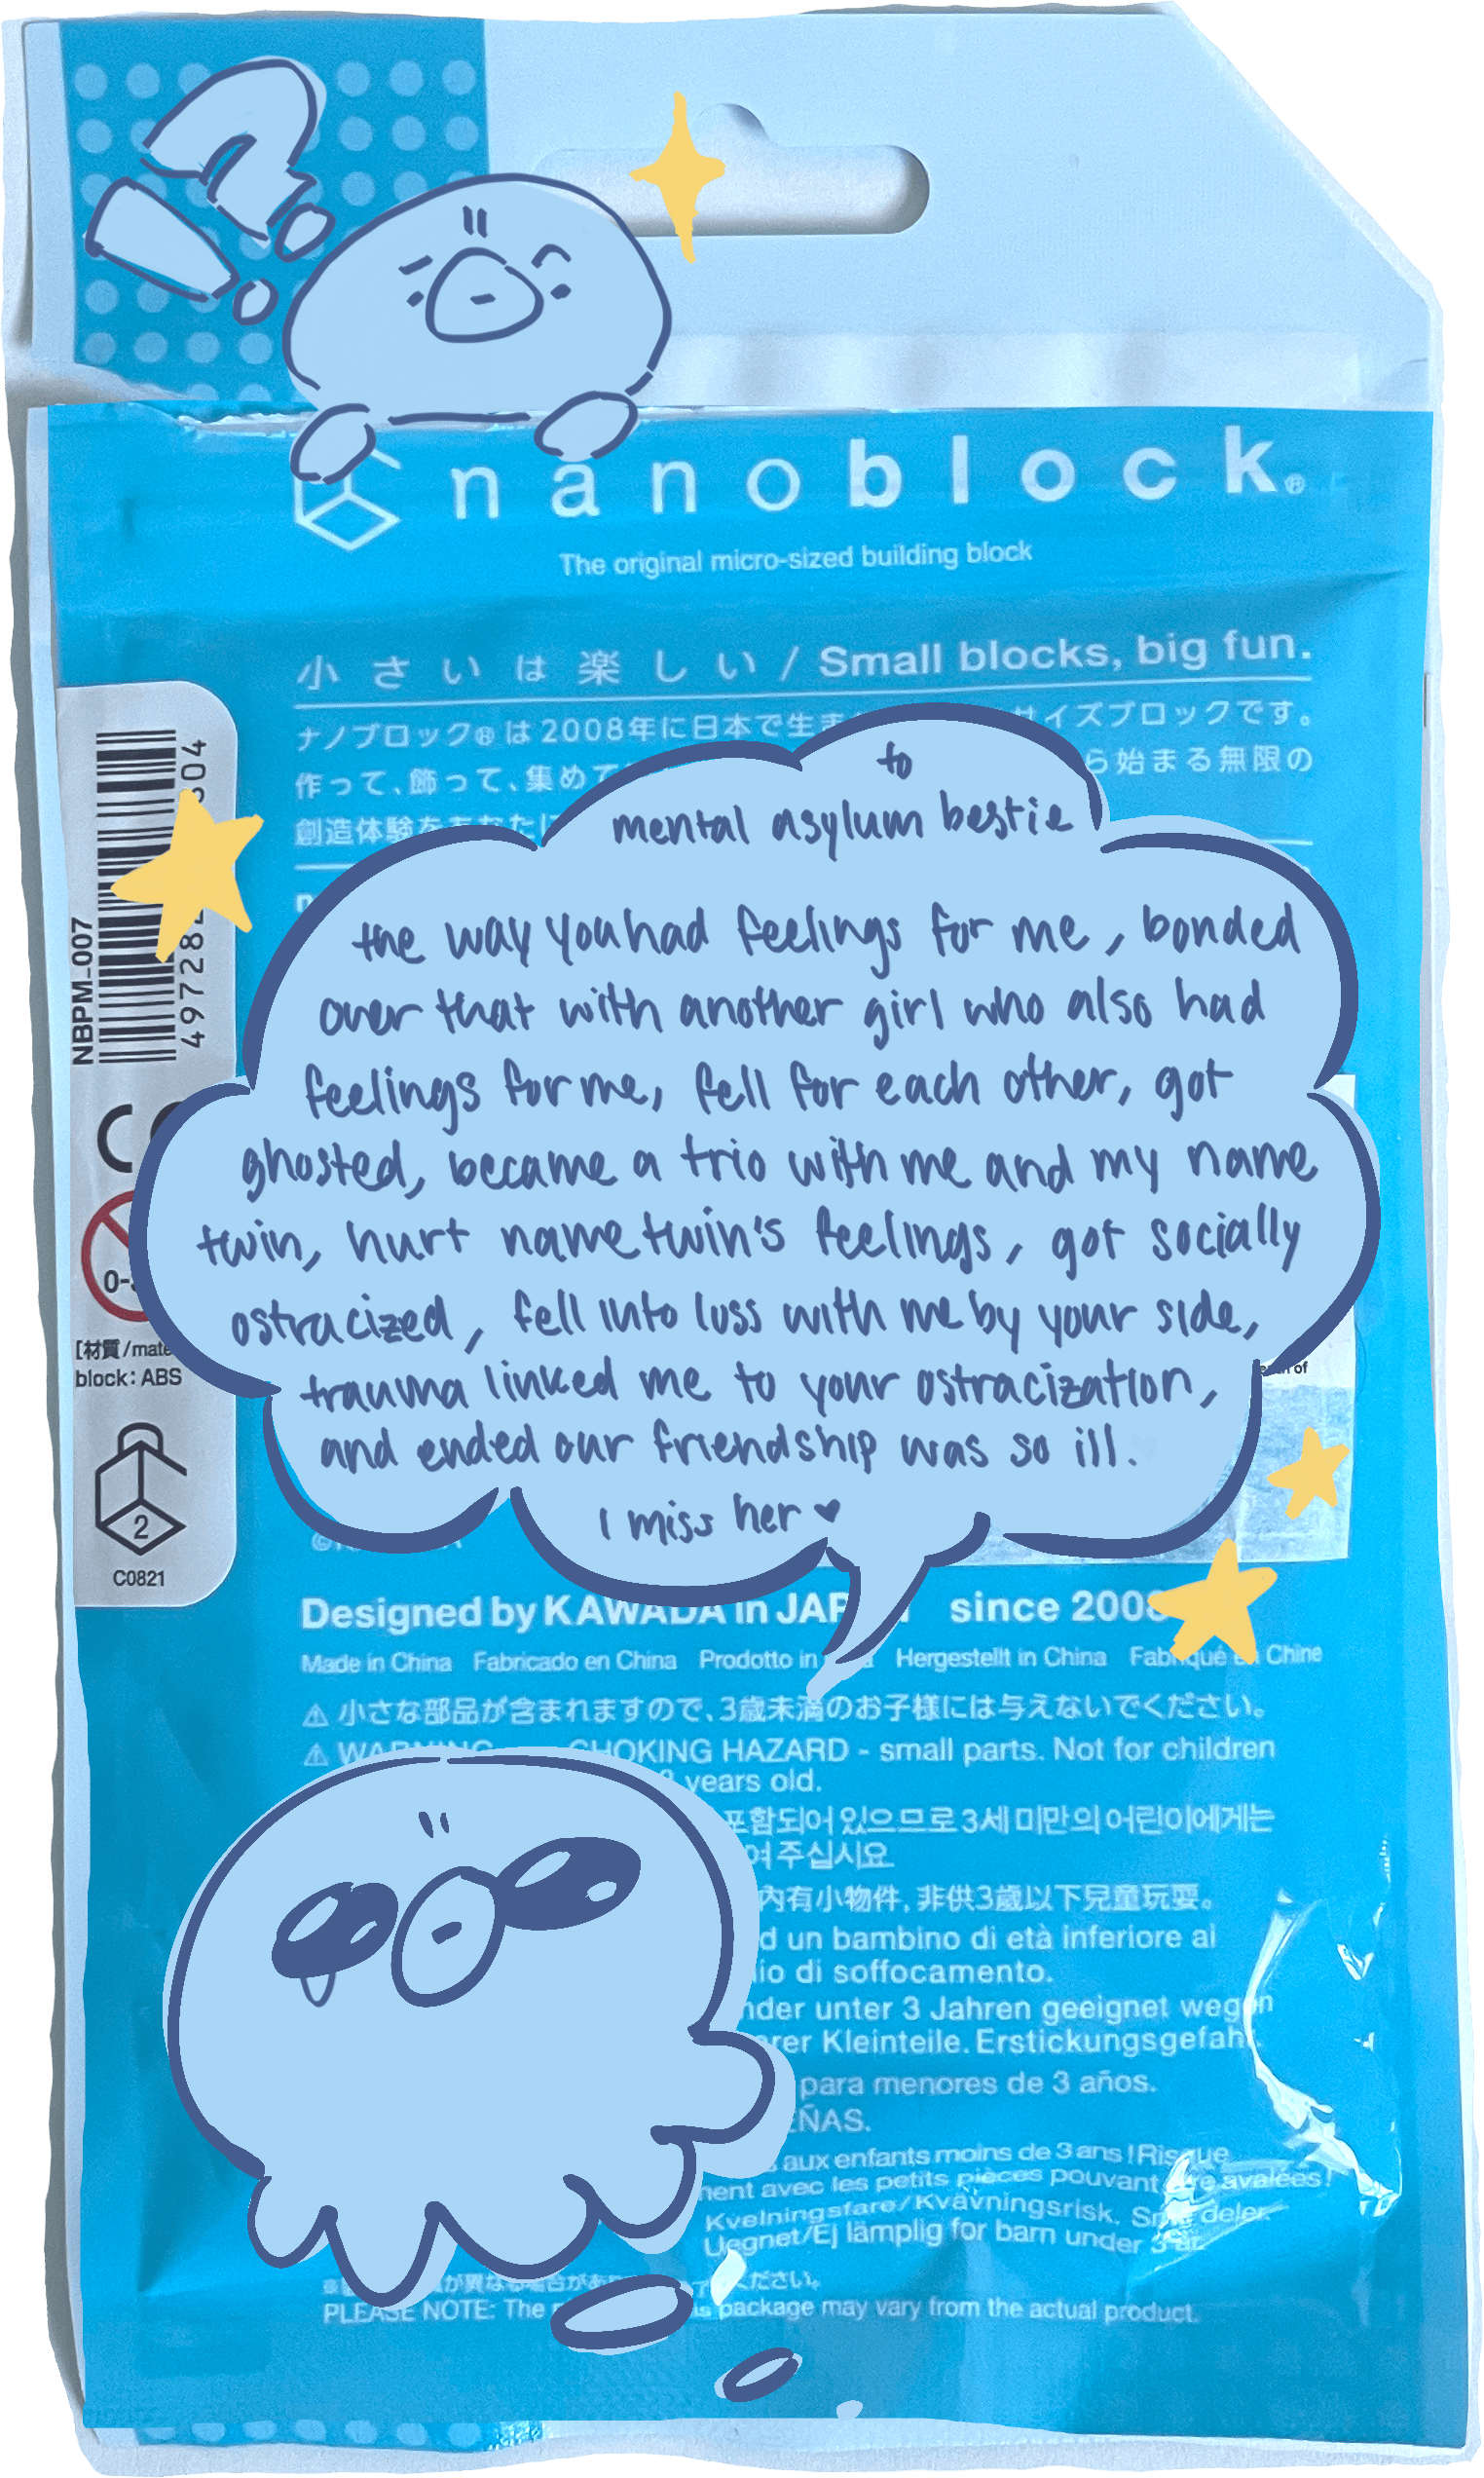 nanoblock®
The original micro-sized building block
小さいは楽しい / Small blocks, big fun.
ナノブロック®は2008年に日本で生ま サイズブロックです。
作って、飾って、集めて ら始まる無限の
創造体験をあなたに
to
mental asylum bestie
the way you had feelings for me, bonded
over that with another girl who also had
feelings for me, fell for each other, got
ghosted, became a trio with me and my name
twin, hurt name twin's feelings, got socially
ostracized, fell into loss with me by your side,
trauma linked me to your ostracization,
and ended our friendship was so ill.
I miss her ♥
NBPM_007
497282
04
CE
0-3
[材質/mate
block: ABS
2
C0821
Designed by KAWADA in JAPAN since 2008
Made in China Fabricado en China Prodotto in Hergestellt in China Fabriqué en Chine
⚠ 小さな部品が含まれますので、3歳未満のお子様には与えないでください。
⚠ WARNING CHOKING HAZARD - small parts. Not for children
3 years old.
포함되어 있으므로 3세 미만의 어린이에게는
여 주십시오
內有小物件, 非供3歲以下兒童玩耍。
d un bambino di età inferiore ai
io di soffocamento.
nder unter 3 Jahren geeignet wegen
arer Kleinteile. Erstickungsgefahr.
para menores de 3 años.
EÑAS.
aux enfants moins de 3 ans ! Risque
ment avec les petits pièces pouvant être avalées!
Kvelningsfare/Kvävningsrisk. Små deler.
Uegnet/Ej lämplig for barn under 3 år.
が異なる場合があ ください。
PLEASE NOTE: The package may vary from the actual product.